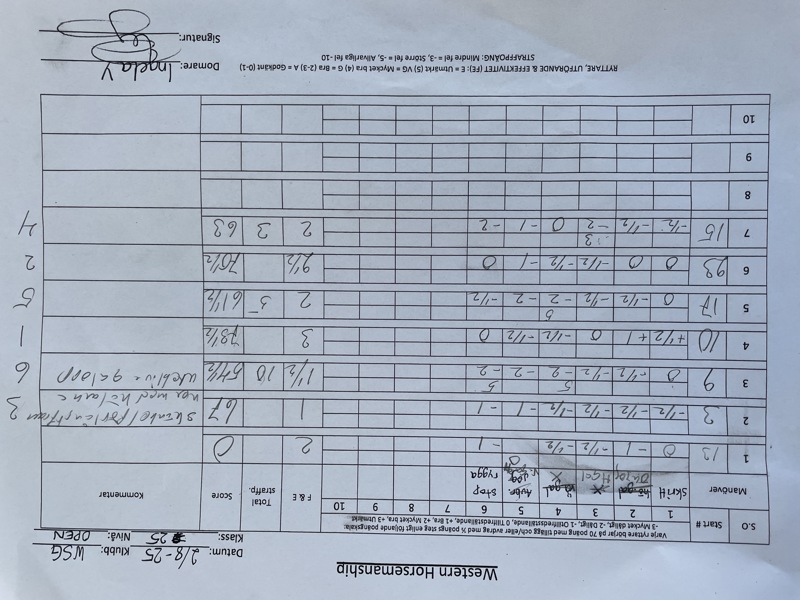 Western Horsemanship
Datum: 2/8-25 Klubb: WSG
Klass: 25 Nivå: OPEN
Varje ryttare börjar på 70 poäng med tillägg och/eller avdrag med ½ poängs steg enligt följande poängskala:
-3 Mkt dåligt, -2 Dåligt, -1 Otillfredsställande, 0 Tillfredställande, +1 Bra, +2 Mycket bra, +3 Utmärkt
S.O Start # 1 2 3 4 5 6 7 8 9 10 F & E Total straffp. Score Kommentar
Manöver Skritt stop rygga
1 13 0 -1 -½ -½ -1 2 0
2 3 -½ -½ -½ -½ -1 -1 1 67 3
3 9 5 5
0 -½ -½ -2 -2 -2 1½ 10 54½ utebliven galopp 6
4 10 +½ +1 0 -½ -½ 0 3 73½ 1
5 17 0 -½ -½ -2 -2 -½ 2 5 61½ 5
5
6 23 0 0 -½ -½ -1 0 2½ 70½ 2
7 15 3
-½ -½ -2 0 -1 -2 2 3 63 4
8
9
10
RYTTARE, UTFÖRANDE & EFFEKTIVITET (FE): E = Utmärkt (5) VG = Mycket bra (4) G = Bra (2-3) A = Godkänt (0-1)
STRAFFPOÄNG: Mindre fel = -3, Större fel = -5, Allvarliga fel -10
Domare: Ingela V
Signatur: